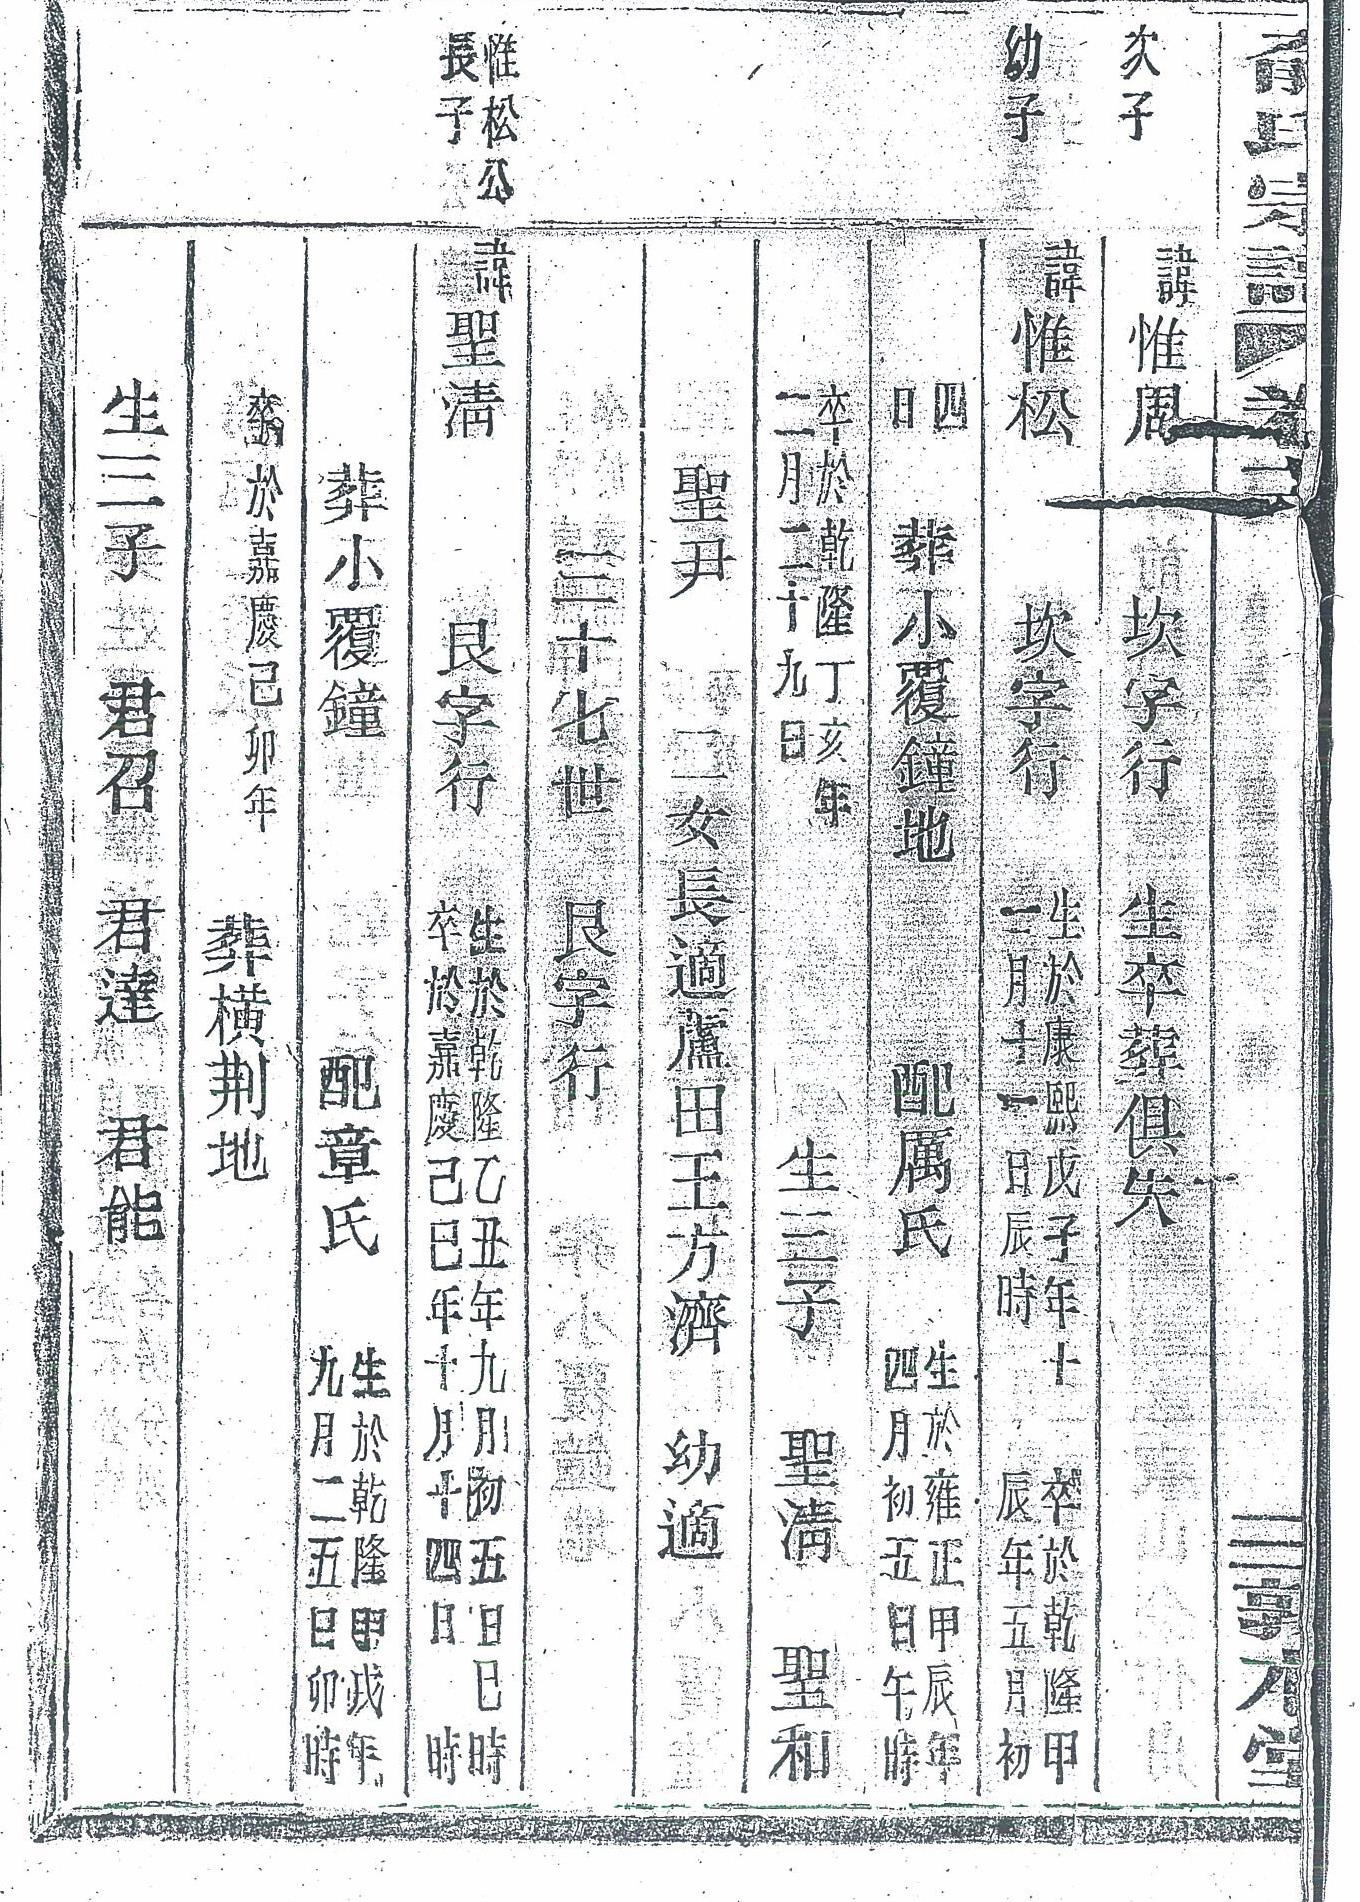 次子
諱惟周 坎字行 生卒葬俱失
幼子
諱惟松 坎字行 生於康熙戊子年十
二月十一日辰時 卒於乾隆甲
辰年五月初
四
日 葬小覆鐘地 配厲氏 生於雍正甲辰年
四月初五日午時
卒於乾隆丁亥年
二月二十九日 生三子 聖清 聖和
聖尹 二女長適蘆田王方濟 幼適
三十七世 艮字行
惟松公
長子
諱聖清 艮字行 生於乾隆乙丑年九月初五日巳時
卒於嘉慶己巳年十月十四日 時
葬小覆鐘 配章氏 生於乾隆甲戌年
九月二五日卯時
卒於嘉慶己卯年 葬橫荆地
生三子 君召 君達 君能